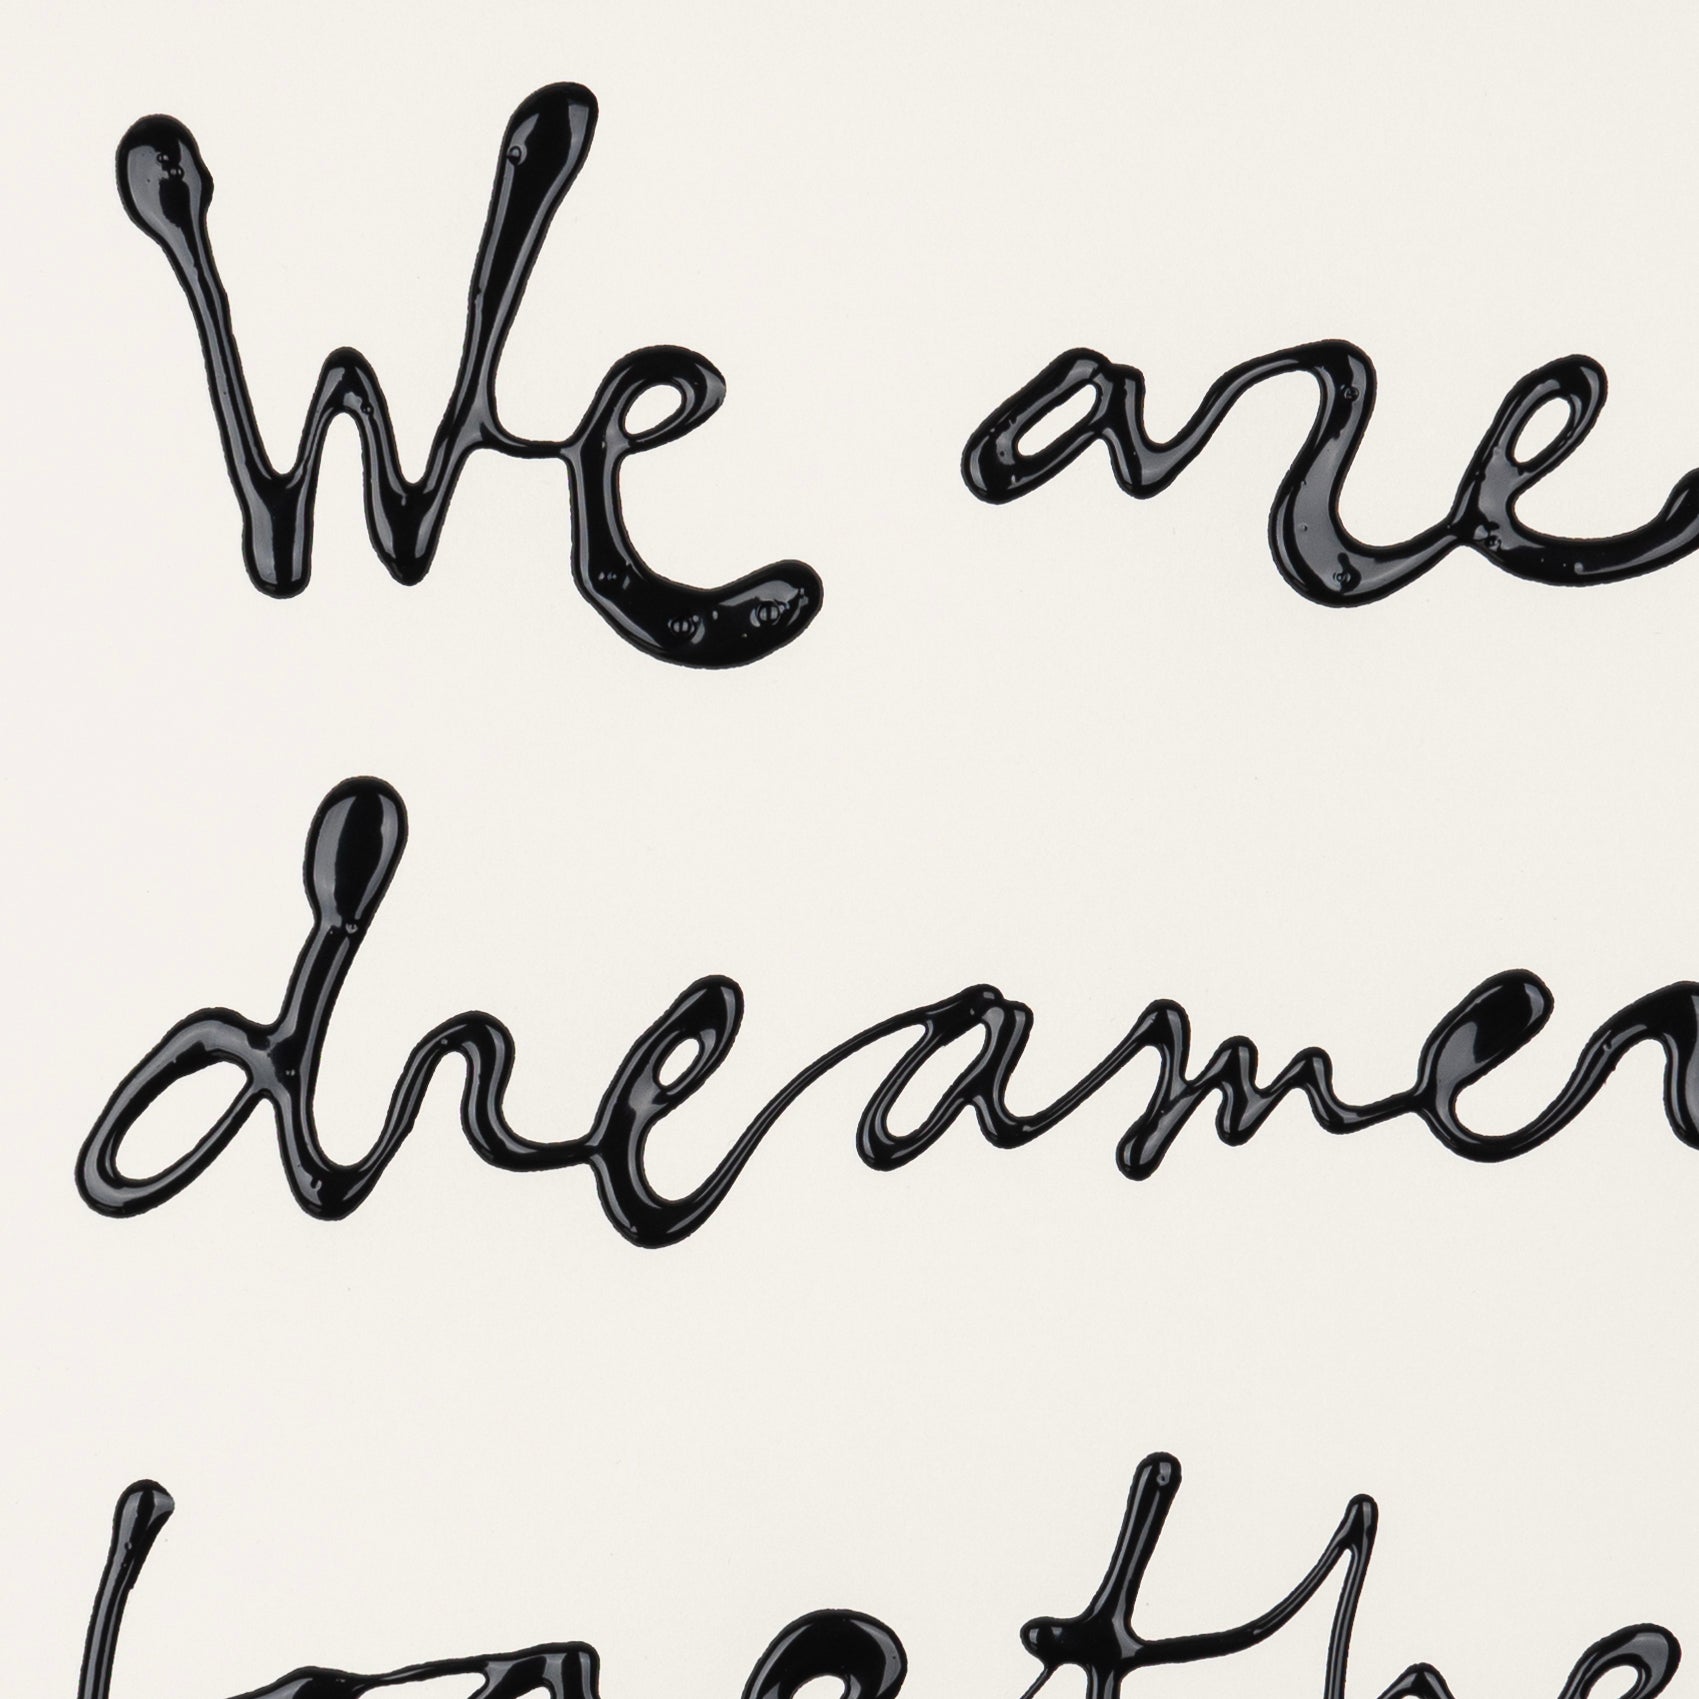 We are
dreamer